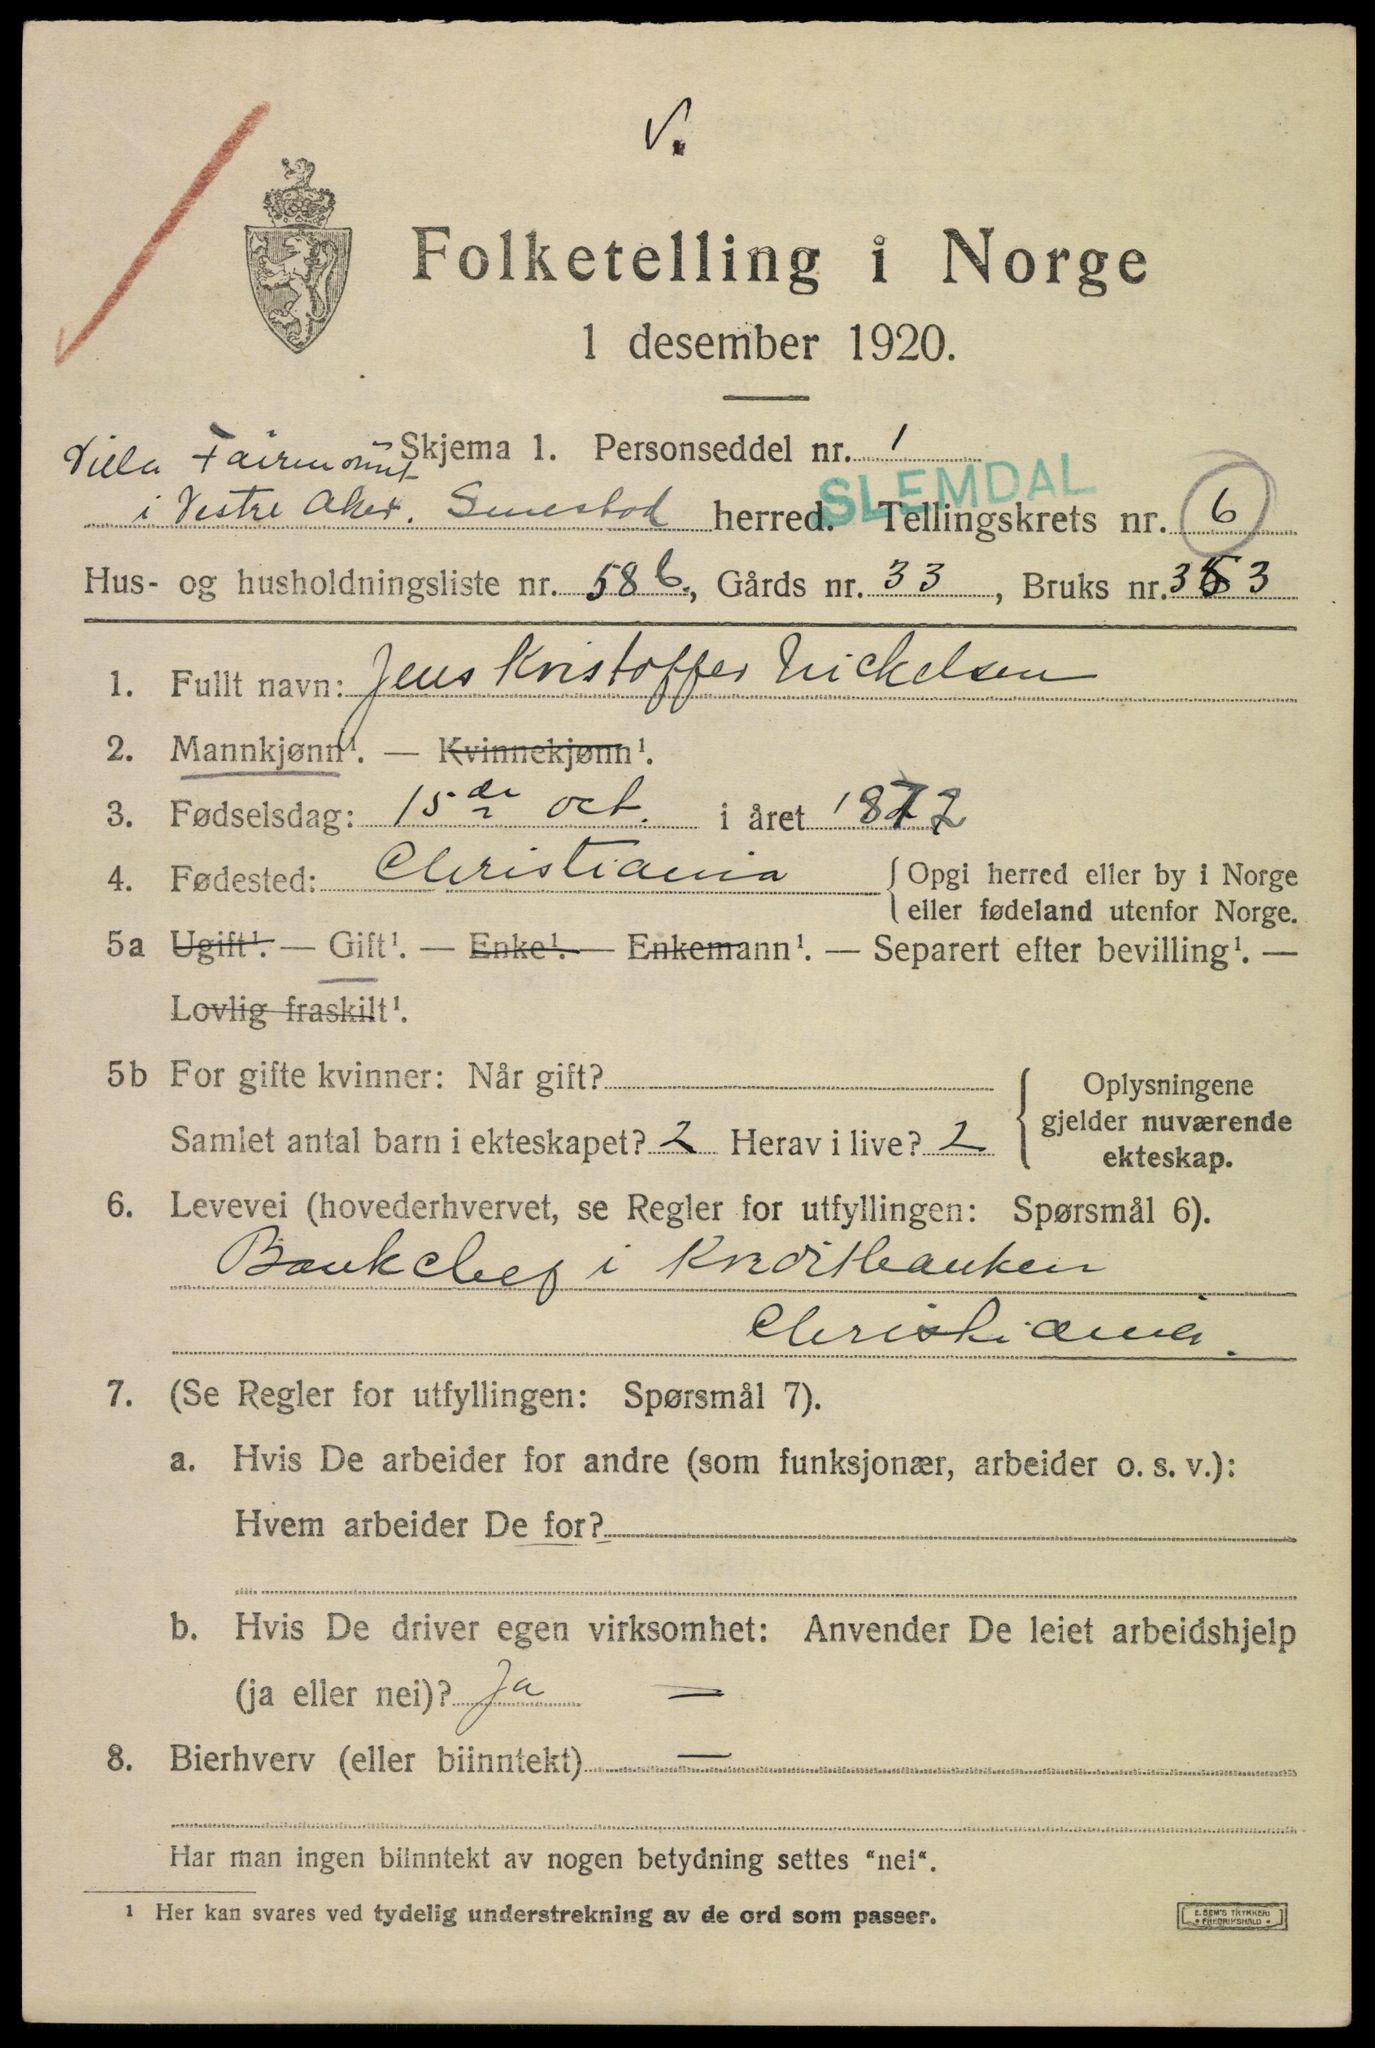 V.
Folketelling i Norge
1 desember 1920.
Skjema 1. Personseddel nr. 1
Villa Fairmount
SLEMDAL
i Vestre Aker. Smestad herred. Tellingskrets nr. 6
Hus- og husholdningsliste nr. 586, Gårds nr. 33, Bruks nr. 353
1. Fullt navn: Jens Kristoffer Nickelsen
2. Mannkjønn¹. — Kvinnekjønn¹.
3. Fødselsdag: 15de oct. i året 1872
4. Fødested: Christiania {Opgi herred eller by i Norge
eller fødeland utenfor Norge.
5a Ugift¹. — Gift¹. — Enke¹. — Enkemann¹. — Separert efter bevilling¹. —
Lovlig fraskilt¹.
5b For gifte kvinner: Når gift?
Samlet antal barn i ekteskapet? 2 Herav i live? 2
{Oplysningene
gjelder nuværende
ekteskap.
6. Levevei (hovederhvervet, se Regler for utfyllingen: Spørsmål 6).
Bankchef i Kreditbanken
Christiania.
7. (Se Regler for utfyllingen: Spørsmål 7).
a. Hvis De arbeider for andre (som funksjonær, arbeider o. s. v.):
Hvem arbeider De for?
b. Hvis De driver egen virksomhet: Anvender De leiet arbeidshjelp
(ja eller nei)? Ja —
8. Bierhverv (eller biinntekt) —
Har man ingen biinntekt av nogen betydning settes "nei".
¹ Her kan svares ved tydelig understrekning av de ord som passer.
E. SEM'S TRYKKERI
FREDRIKSHALD